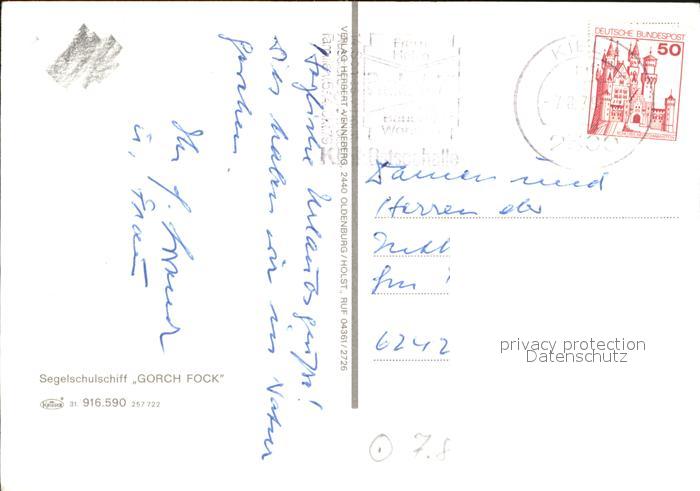 Herzliche Urlaubsgrüße!
Dies haben wir in Natur
gesehen.
Ihr
u. Frau
VERLAG HERBERT VENNEBERG, 2440 OLDENBURG/HOLST., RUF 04361/2726
Segelschulschiff „GORCH FOCK"
31. 916.590 257 722
DEUTSCHE BUNDESPOST
50
KIEL
Damen und
Herren der
6242
privacy protection
Datenschutz
7.8